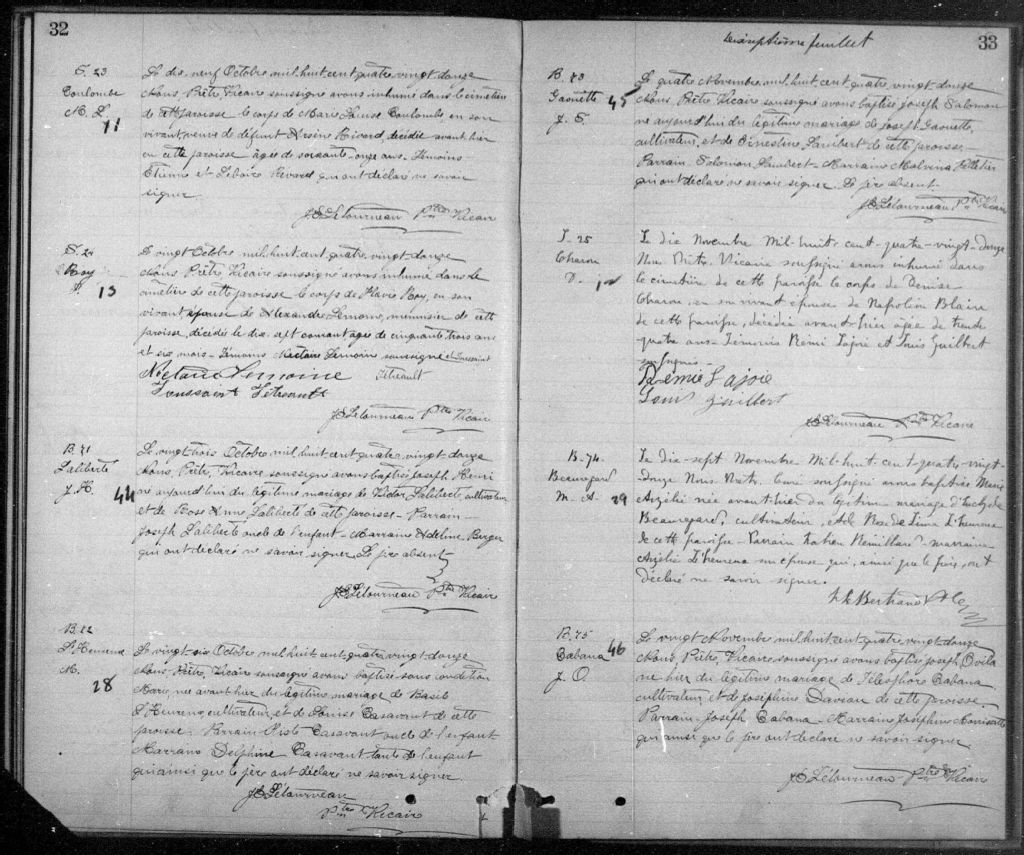 32
S. 23
Coulombe
M. L.
11
Le dix neuf Octobre mil huit cent quatre vingt douze
Nous Prêtre, Vicaire soussigné avons inhumé dans le cimetière
de cette paroisse le corps de Marie Louise Coulombe en son
vivant, veuve de défunt Arsène Rivard, décédée avant hier
en cette paroisse âgée de soixante onze ans. Témoins
Etienne et Rivard qui ont déclaré ne savoir
signer.
J E Létourneau Ptre Vicaire
S. 24
Roy
13
Le vingt Octobre mil huit cent quatre vingt douze
Nous Prêtre Vicaire soussigné avons inhumé dans le
cimetière de cette paroisse le corps de Flavie Roy, en son
vivant épouse de Alexandre Lemoine, menuisier de cette
paroisse, décédée le dix sept courant âgée de cinquante trois ans
et six mois. Témoins Nectaire Lemoine soussigné et Toussaint
Tétreault
Nectaire Lemoine
Toussaint Tétreault
J E Létourneau Ptre Vicaire
B. 71
Laliberté
J. H.
44
Le vingt trois Octobre mil huit cent quatre vingt douze
Nous Prêtre, Vicaire, soussigné avons baptisé Joseph Henri
né aujourd'hui du légitime mariage de Victor Laliberté, cultivateur
et de Rose Anna Laliberté de cette paroisse - Parrain -
Joseph Laliberté oncle de l'enfant - Marraine Adeline Berger
qui ont déclaré ne savoir signer. Le père absent
J E Létourneau Ptre Vicaire
B. 72
L'Heureux
M.
28
Le vingt six Octobre mil huit cent quatre vingt douze
Nous Prêtre, Vicaire soussigné avons baptisé sous condition
Marie, née avant hier du légitime mariage de Basile
L'Heureux, cultivateur, et de Louise Casavant de cette
paroisse - Parrain Casavant oncle de l'enfant
Marraine Delphine Casavant tante de l'enfant
qui ainsi que le père ont déclaré ne savoir signer
J E Létourneau
Ptre Vicaire
Dixseptième feuillet
33
B. 73
Gaouette
J. S.
45
Le quatre Novembre mil huit cent quatre vingt douze
Nous Prêtre, Vicaire soussigné avons baptisé Joseph Salomon
né aujourd'hui du légitime mariage de Joseph Gaouette,
cultivateur, et de Ernestine Lambert de cette paroisse -
Parrain - Salomon Lambert - Marraine Malvina Pelletier
qui ont déclaré ne savoir signer. Le père absent.
J E Létourneau Ptre Vicaire
S. 25
Charon
D.
Le dix Novembre Mil-huit-cent-quatre-vingt-douze
Nous Prêtre Vicaire soussigné avons inhumé dans
le cimetière de cette paroisse le corps de Denise
Charon, en son vivant épouse de Napoléon Blain
de cette paroisse, décédée avant-hier âgée de trente
quatre ans. Témoins Rémi Lajoie et Louis Guilbert
soussignés.
Rémie Lajoie
Louis Guilbert
J E Létourneau Ptre Vicaire
B. 74.
Beauregard
M. A.
29
Le dix-sept Novembre Mil-huit-cent-quatre-vingt-
douze Nous Prêtre Curé soussigné avons baptisé Marie
Azélie née avant-hier du légitime mariage d'
Beauregard, cultivateur, et de Rose de Lima L'heureux
de cette paroisse - Parrain Rémillard - marraine
Azélie L'heureux son épouse qui, ainsi que le père, ont
déclaré ne savoir signer.
Bertrand Ptre
B. 75
Cabana
J. O.
46
Le vingt Novembre mil huit cent quatre vingt douze
Nous Prêtre, Vicaire, soussigné avons baptisé Joseph Ovila
né hier du légitime mariage de Télesphore Cabana
cultivateur, et de Joséphine Daveau de cette paroisse.
Parrain - Joseph Cabana - Marraine Joséphine
qui ainsi que le père ont déclaré ne savoir signer.
J E Létourneau Ptre Vicaire